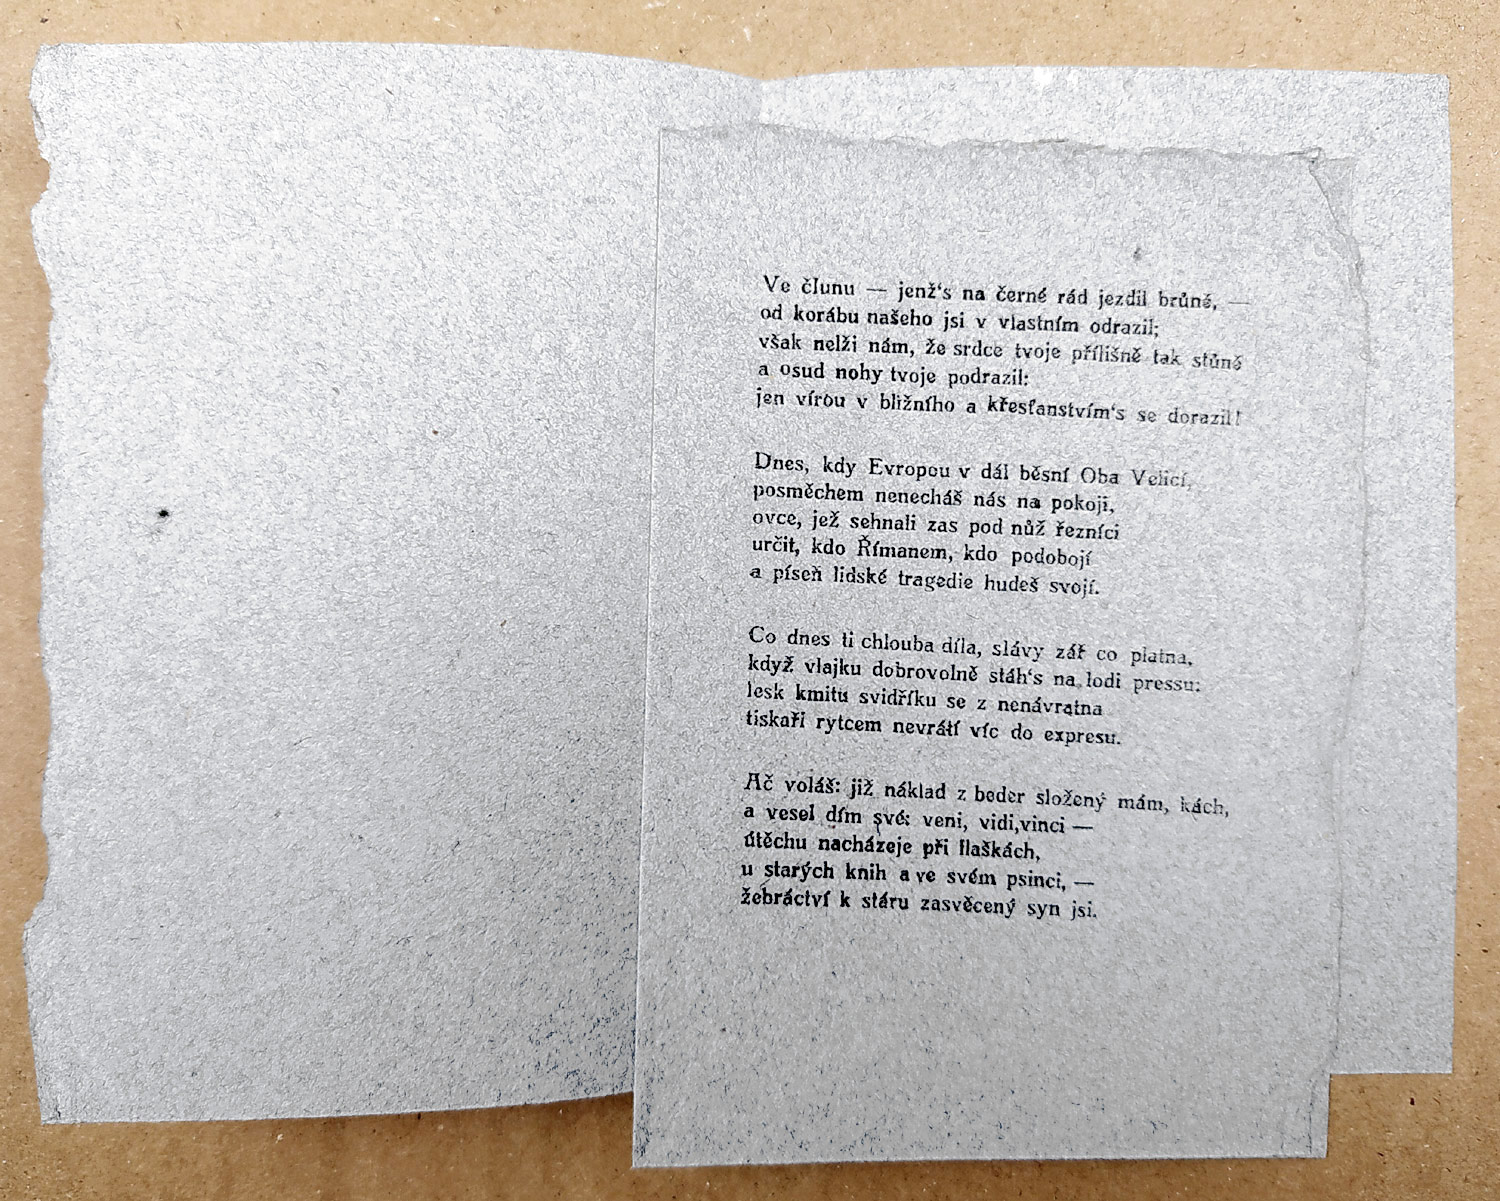 Ve člunu — jenž's na černé rád jezdil brůně, —
od korábu našeho jsi v vlastním odrazil;
však nelži nám, že srdce tvoje přílišně tak stůně
a osud nohy tvoje podrazil:
jen vírou v bližního a křesťanstvím's se dorazil!

Dnes, kdy Evropou v dál běsní Oba Velicí,
posměchem nenecháš nás na pokoji,
ovce, jež sehnali zas pod nůž řezníci
určit, kdo Římanem, kdo podobojí
a píseň lidské tragedie hudeš svojí.

Co dnes ti chlouba díla, slávy zář co platna,
když vlajku dobrovolně stáh's na lodi pressu:
lesk kmitu svidříku se z nenávratna
tiskaři rytcem nevrátí víc do expresu.

Ač voláš: již náklad z beder složený mám, kách,
a vesel dím své: veni, vidi,vinci —
útěchu nacházeje při flaškách,
u starých knih a ve svém psinci, —
žebráctví k stáru zasvěcený syn jsi.